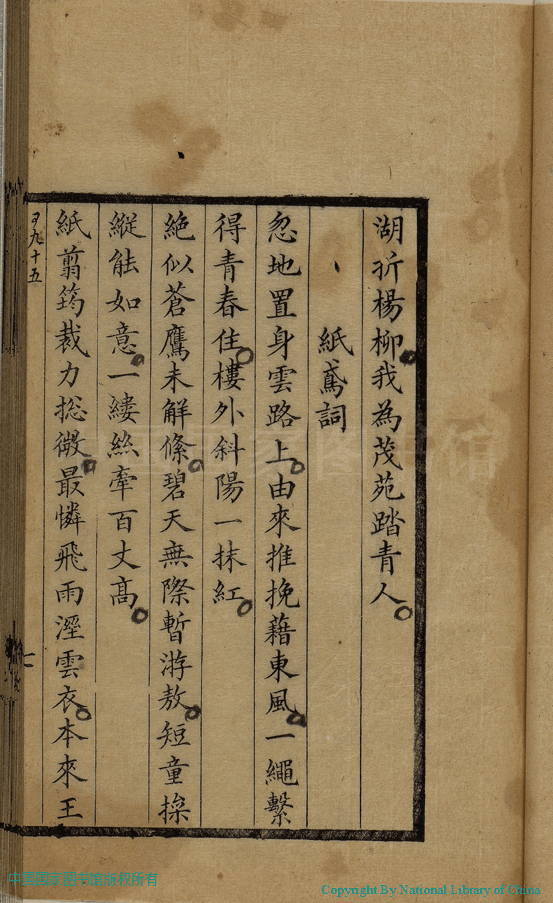 湖折楊柳我為茂苑踏青人
紙鳶詞
忽地置身雲路上由來推挽藉東風一繩繫
得青春住樓外斜陽一抹紅
絶似蒼鷹未解絛碧天無際暫游敖短童操
縱能如意一縷絲牽百丈髙
紙翦筠裁力捴微最憐飛雨溼雲衣本來王
九十五
七
Copyright By National Library of China